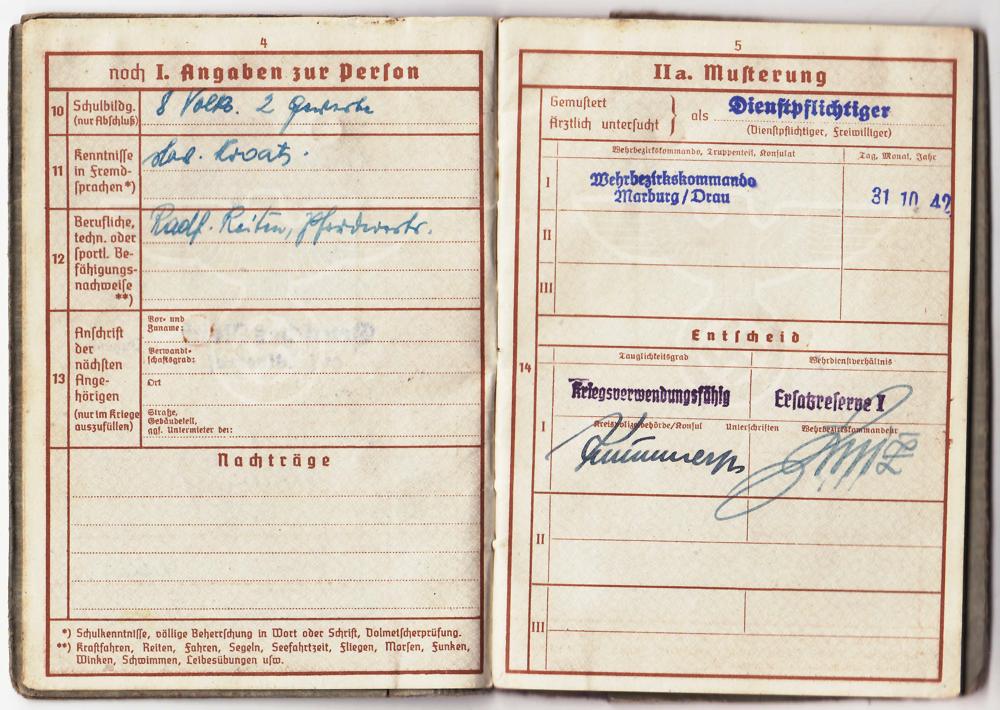 4
noch I. Angaben zur Person
10
Schulbildg.
(nur Abschluß)
8 Volks. 2 Gewerbe
11
Kenntnisse
in Fremd-
sprachen*)
Kroat.
12
Berufliche,
techn. oder
sportl. Be-
fähigungs-
nachweise
**)
Radf. Reiten,
13
Anschrift
der
nächsten
Ange-
hörigen
(nur im Kriege
auszufüllen)
Vor- und
Zuname:
Verwandt-
schaftsgrad:
Ort
Straße,
Gebäudeteil,
ggf. Untermieter bei:
Nachträge
*) Schulkenntnisse, völlige Beherrschung in Wort oder Schrift, Dolmetscherprüfung.
**) Kraftfahren, Reiten, Fahren, Segeln, Seefahrtzeit, Fliegen, Morsen, Funken,
Winken, Schwimmen, Leibesübungen usw.
5
IIa. Musterung
Gemustert
Ärztlich untersucht } als Dienstpflichtiger
(Dienstpflichtiger, Freiwilliger)
Wehrbezirkskommando, Truppenteil, Konsulat
Tag, Monat, Jahr
I
Wehrbezirkskommando
Marburg/Drau
31 10 42
II
III
Entscheid
14
Tauglichkeitsgrad
Wehrdienstverhältnis
I
Kriegsverwendungsfähig
Ersatzreserve I
Kreispolizeibehörde/Konsul
Unterschriften
Wehrbezirkskommandeur
II
III